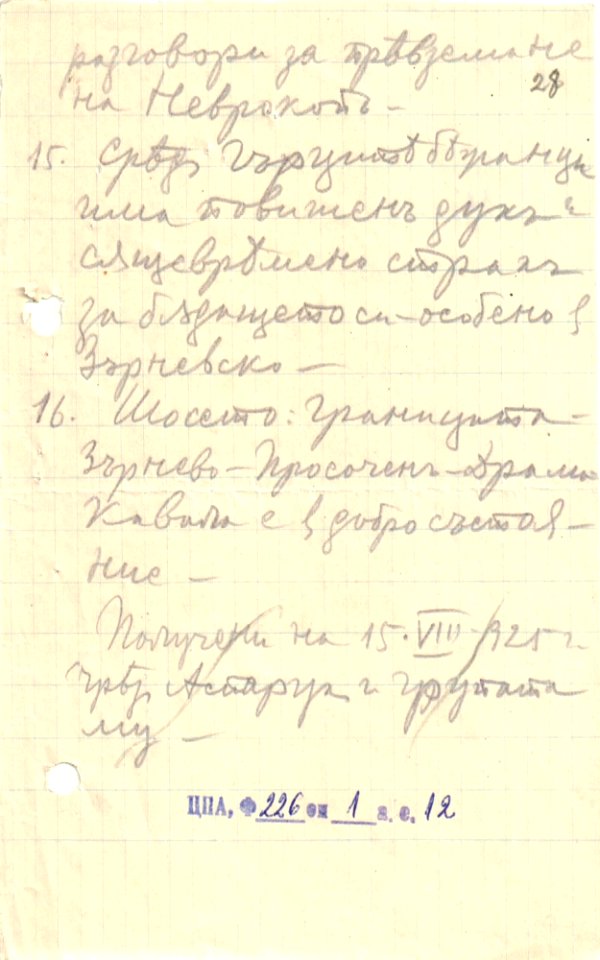 разговори за прѣвземане
28
на Неврокопъ –
15. Срѣдъ гърцитѣ бѣжанци
има повишенъ духъ и
сѫщеврѣмено страхъ
за бѫдащето си – особено въ
Зърневско –
16. Шосето: границата –
Зърнево – Просоченъ – Драма
Кавала е въ добро състоя-
ние –
Получени на 15. VIII 925 г.
чрѣзъ Аспарух и групата
му –
ЦПА, Ф 226 оп 1 а. е. 12